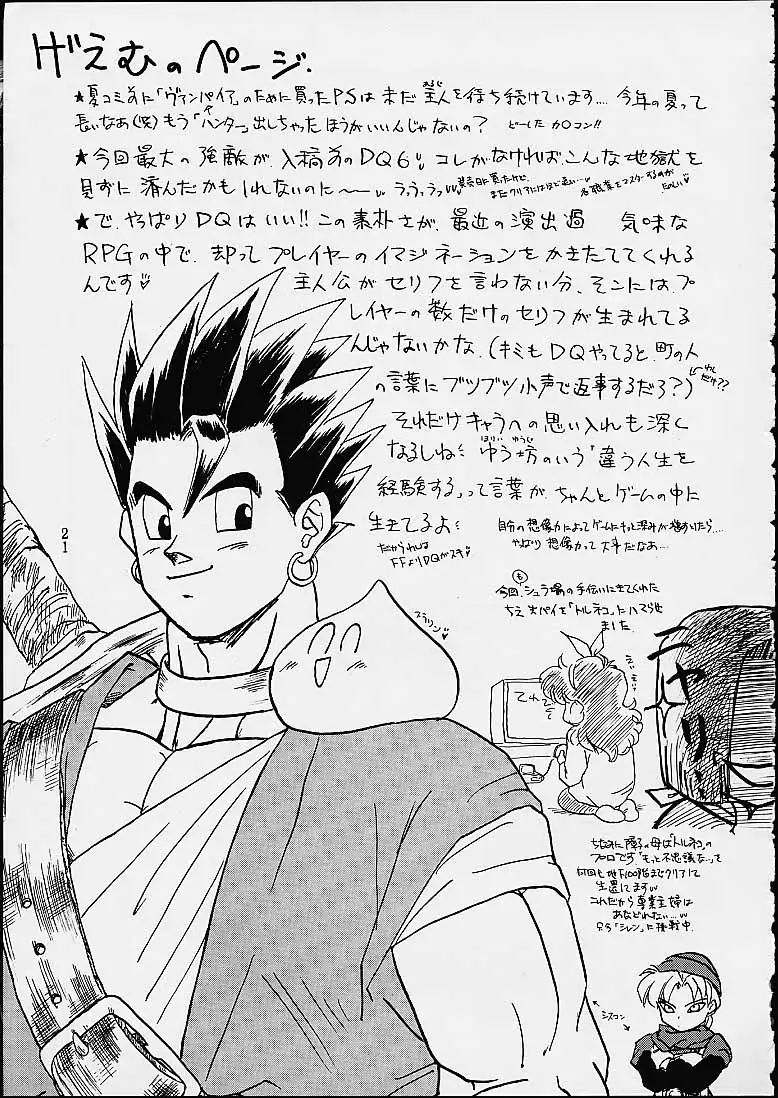 げえむのページ.
★夏コミ前に「ヴァンパイア」のために買ったPSは未だ主人を待ち続けています.... 今年の夏って
長いなあ(笑) もう「ハンター」出しちゃったほうがいいんじゃないの? どーしたカ○コン!!
★今回最大の強敵が、入稿前のDQ6 コレがなければこんな地獄を
見ずに済んだかもしれないのに〜〜 うっうっうっ 発売日に買ったけど、
まだクリアにはほど遠い… 各職業をマスターするのが
たのしい
★で、やっぱりDQはいい!! この素朴さが、最近の演出過 気味な
RPGの中で、却ってプレイヤーのイマジネーションをかきたててくれる
んです
主人公がセリフを言わない分、そこには、プ
レイヤーの数だけのセリフが生まれてる
んじゃないかな、(キミもDQやってると、町の人
の言葉にブツブツ小声で返事するだろ?) だけ??
それだけキャラへの思い入れも深く
なるしね
ほりい ゆうじ
ゆう坊のいう「違う人生を
経験する」って言葉が、ちゃんとゲームの中に
生きてるよ
だからわれは
FFよりDQがスキ
自分の想像力によってゲームにもっと深みが増すいたら....
やっぱり想像力って大事だなあ...
21
スラリン
今回、シュラ場の手伝いにきてくれた
ちえ
を「トルネコ」にハマらせ
ました
てれ
ニヤリ
ちなみに
の母は「トルネコ」の
プロです 「もっと不思議な」って
何回も地下100階までクリアして
生還してます
これだから専業主婦は
あなどれない...
只今「シレン」に挑戦中.
シスコン